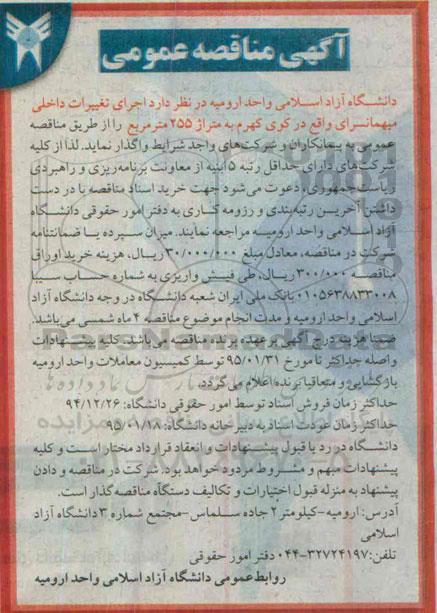 آگهی مناقصه عمومی
دانشگاه آزاد اسلامی واحد ارومیه در نظر دارد اجرای تغییرات داخلی
میهمانسرای واقع در کوی کهرم به متراژ ۲۵۵ مترمربع را از طریق مناقصه
عمومی به پیمانکاران و شرکت‌های واجد شرایط واگذار نماید. لذا از کلیه
شرکت‌های دارای حداقل رتبه ۵ ابنیه از معاونت برنامه‌ریزی و راهبردی
ریاست‌جمهوری، دعوت می‌شود جهت خرید اسناد مناقصه با در دست
داشتن آخرین رتبه‌بندی و رزومه کاری به دفتر امور حقوقی دانشگاه
آزاد اسلامی واحد ارومیه مراجعه نمایند. میزان سپرده یا ضمانتنامه
شرکت در مناقصه، معادل مبلغ ۳۰/۰۰۰/۰۰۰ ریال، هزینه خرید اوراق
مناقصه ۳۰۰/۰۰۰ ریال، طی فیش واریزی به شماره حساب سیبا
۰۱۰۵۶۳۸۸۳۳۰۰۸ بانک ملی ایران شعبه دانشگاه در وجه دانشگاه آزاد
اسلامی واحد ارومیه و مدت انجام موضوع مناقصه ۴ ماه شمسی می‌باشد.
ضمنا هزینه درج آگهی بر عهده برنده مناقصه می‌باشد. کلیه پیشنهادات
واصله حداکثر تا مورخ ۹۵/۰۱/۳۱ توسط کمیسیون معاملات واحد ارومیه
بازگشایی و متعاقبا برنده اعلام می‌گردد.
حداکثر زمان فروش اسناد توسط امور حقوقی دانشگاه: ۹۴/۱۲/۲۶
حداکثر زمان عودت اسناد به دبیرخانه دانشگاه: ۹۵/۰۱/۱۸
دانشگاه در رد یا قبول پیشنهادات و انعقاد قرارداد مختار است و کلیه
پیشنهادات مبهم و مشروط مردود خواهد بود. شرکت در مناقصه و دادن
پیشنهاد به منزله قبول اختیارات و تکالیف دستگاه مناقصه‌گذار است.
آدرس: ارومیه-کیلومتر ۲ جاده سلماس-مجتمع شماره ۳ دانشگاه آزاد
اسلامی
تلفن: ۳۲۷۲۴۱۹۷-۰۴۴ دفتر امور حقوقی
روابط‌عمومی دانشگاه آزاد اسلامی واحد ارومیه